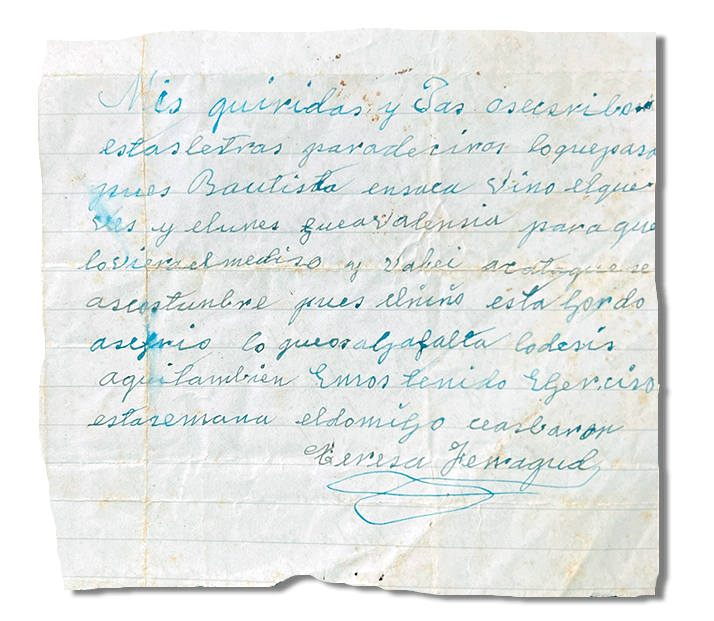 Mis quiridas y Tas osescribor
estasletras paradeciros loquepaso
pues Bautista ensaca Vino elque
ves y elunes fuea Valensia para que
loviera el mediso y Vabei acataquese
ascostunbre pues elniño esta Gordo
asefrio lo queosalgafalta lodesis
aquitambien Emos tenido Egerciso
estasemana eldomigo ceasbaron
Teresa Ferragud